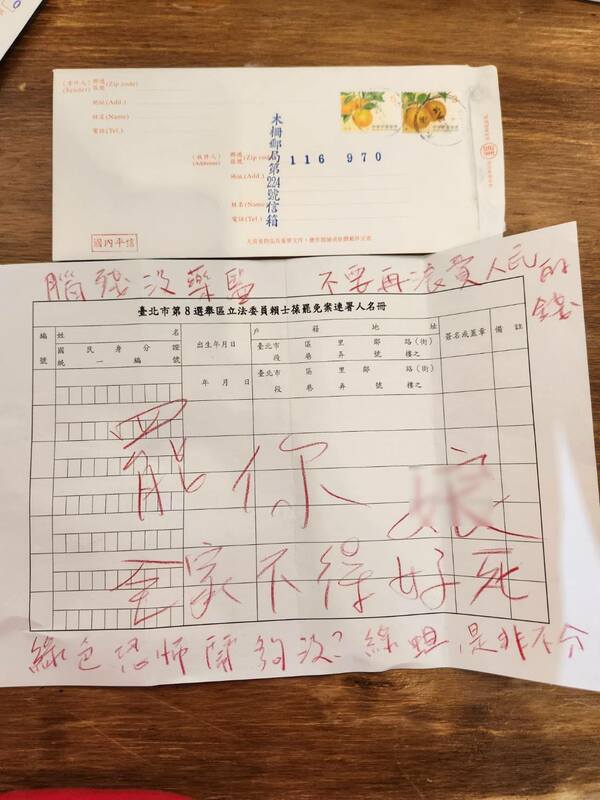 (寄件人) 郵遞區號 (Zip code)
(Sender)
地址(Add.)
姓名(Name)
電話(Tel.)
木柵郵局第224號信箱
116 970
(收件人) 郵遞區號 (Zip code)
(Addressee)
地址(Add.)
姓名(Name)
電話(Tel.)
國內平信
腦殘沒藥醫 不要再浪費人民的錢
臺北市第8選舉區立法委員賴士葆罷免案連署人名冊
編號 姓名 出生年月日 戶籍地址 簽名或蓋章 備註
國民身分證統一編號
臺北市 區 里 鄰 路(街)
段 巷 弄 號 樓之
年 月 日
臺北市 區 里 鄰 路(街)
段 巷 弄 號 樓之
罷你娘
全家不得好死
綠色恐怖鬧夠沒?綠蛆是非不分